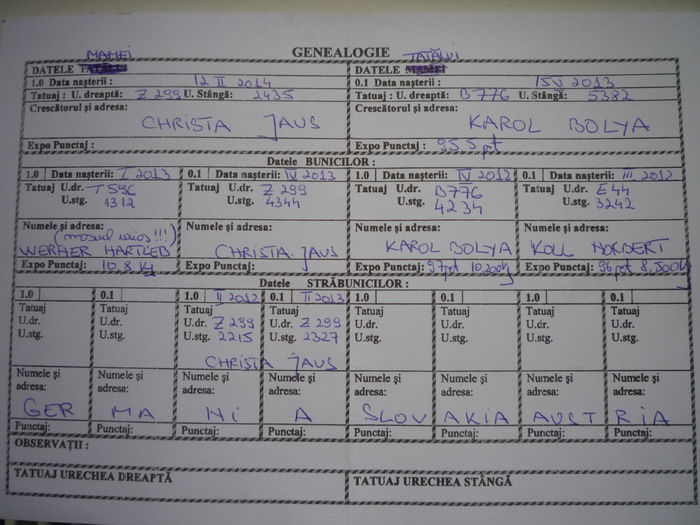 GENEALOGIE
MAMEI TATĂLUI
DATELE TATĂLUI DATELE MAMEI
1.0 Data nașterii : 12 II 2014 0.1 Data nașterii : 15 V 2013
Tatuaj : U. dreaptă: Z 299 U. Stângă: 2435 Tatuaj : U. dreaptă: B776 U. Stângă: 5382
Crescătorul și adresa: Crescătorul și adresa:
CHRISTA JAUS KAROL BOLYA
Expo Punctaj : Expo Punctaj : 95 5 pt
Datele BUNICILOR :
1.0 Data nașterii: I 2013 0.1 Data nașterii: IV 2013 1.0 Data nașterii: IV 2012 0.1 Data nașterii: III 2012
Tatuaj U.dr. T 596 Tatuaj U.dr. Z 299 Tatuaj U.dr. B776 Tatuaj U.dr. E 44
U.stg. 1312 U.stg. 4344 U.stg. 4234 U.stg. 3242
Numele și adresa: Numele și adresa: Numele și adresa: Numele și adresa:
(mosul urios !!!)
WERHER HARTLEB CHRISTA JAUS KAROL BOLYA KOLL NORBERT
Expo Punctaj: 10,8 Kg Expo Punctaj: Expo Punctaj: 97pt 10,200Kg Expo Punctaj: 96 pt 8,500Kg
Datele STRĂBUNICILOR :
1.0 0.1 1.0 II 2012 0.1 II 2013 1.0 0.1 1.0 0.1
Tatuaj Tatuaj Tatuaj Tatuaj Tatuaj Tatuaj Tatuaj Tatuaj
U.dr. U.dr. U.dr. Z 299 U.dr. Z 299 U.dr. U.dr. U.dr. U.dr.
U.stg. U.stg. U.stg. 2215 U.stg. 2327 U.stg. U.stg. U.stg. U.stg.
CHRISTA JAUS
Numele și Numele și Numele și Numele și Numele și Numele și Numele și Numele și
adresa: adresa: adresa: adresa: adresa: adresa: adresa: adresa:
GER MA NI A SLOV AKIA AUST RIA
Punctaj: Punctaj: Punctaj: Punctaj: Punctaj: Punctaj: Punctaj: Punctaj:
OBSERVAȚII :
TATUAJ URECHEA DREAPTĂ TATUAJ URECHEA STÂNGĂ